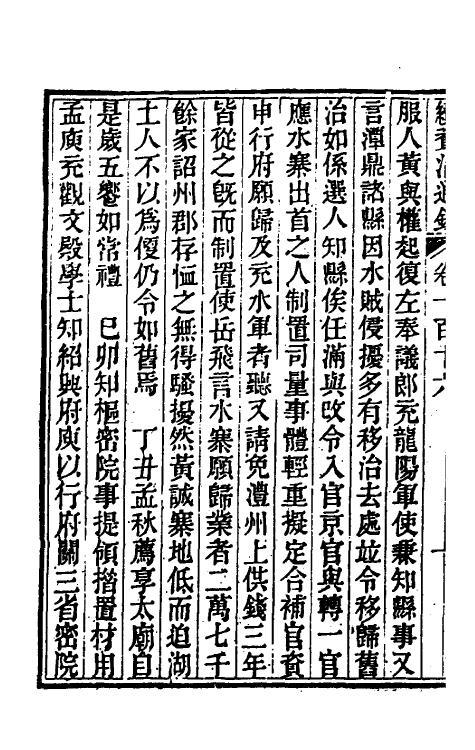 續資治通鑑 卷一百十六
服人黃與權起復左奉議郎充龍陽軍使兼知縣事又
言潭鼎諸縣因水賊侵擾多有移治去處並令移歸舊
治如係選人知縣俟任滿與改令入官京官與轉一官
應水寨出首之人制置司量事體輕重擬定合補官資
申行府願歸及充水軍者聽又請免澧州上供錢三年
皆從之既而制置使岳飛言水寨願歸業者二萬七千
餘家詔州郡存恤之無得騷擾然黃誠寨地低而迫湖
土人不以爲便仍令如舊焉 丁丑孟秋薦享太廟自
是歲五饗如常禮 己卯知樞密院事提領措置材用
孟庾充觀文殿學士知紹興府庾以行府關三省密院